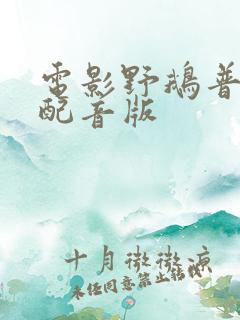 電影野鵝普
配音版
十月微微涼
未经同意禁止转载